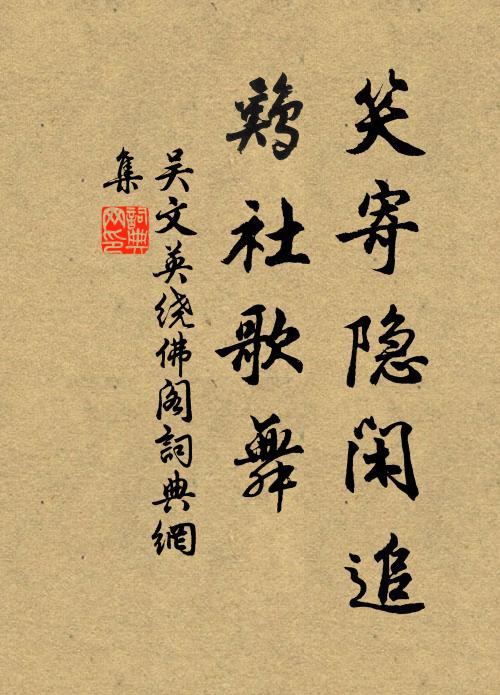 笑寄隐闲追
鷄社歌舞
吴文英绕佛阁詞典網
集
詞典网印